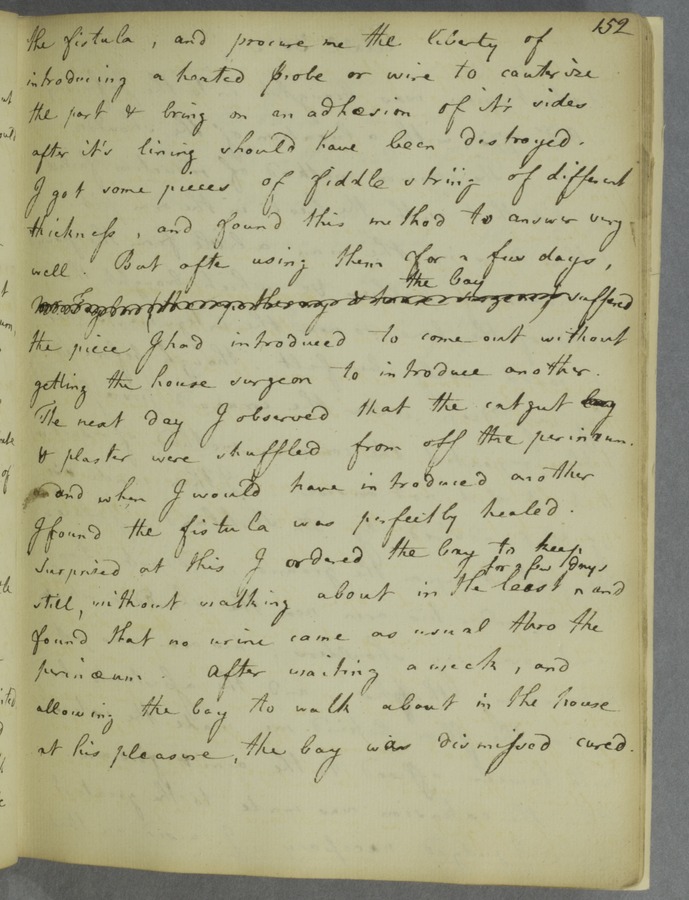 152
the fistula, and procure me the liberty of
introducing a heated probe or wire to cauterize
the part & bring on an adhæsion of it's sides
after it's lining should have been destroyed.
I got some pieces of fiddle string of different
thickness, and found this method to answer very
well. But afte using them for a few days,
the boy
suffered
the piece I had introduced to come out without
getting the house surgeon to introduce another.
The next day I observed that the catgut
& plaster were shuffled from off the perinæum.
and when I would have introduced another
I found the fistula was perfectly healed.
Surprised at this I ordered the boy to keep
for a few days
still, without walking about in the least ^ and
found that no urine came as usual thro the
perinæum. After waiting a week, and
allowing the boy to walk about in the house
at his pleasure, the boy was dismissed cured.